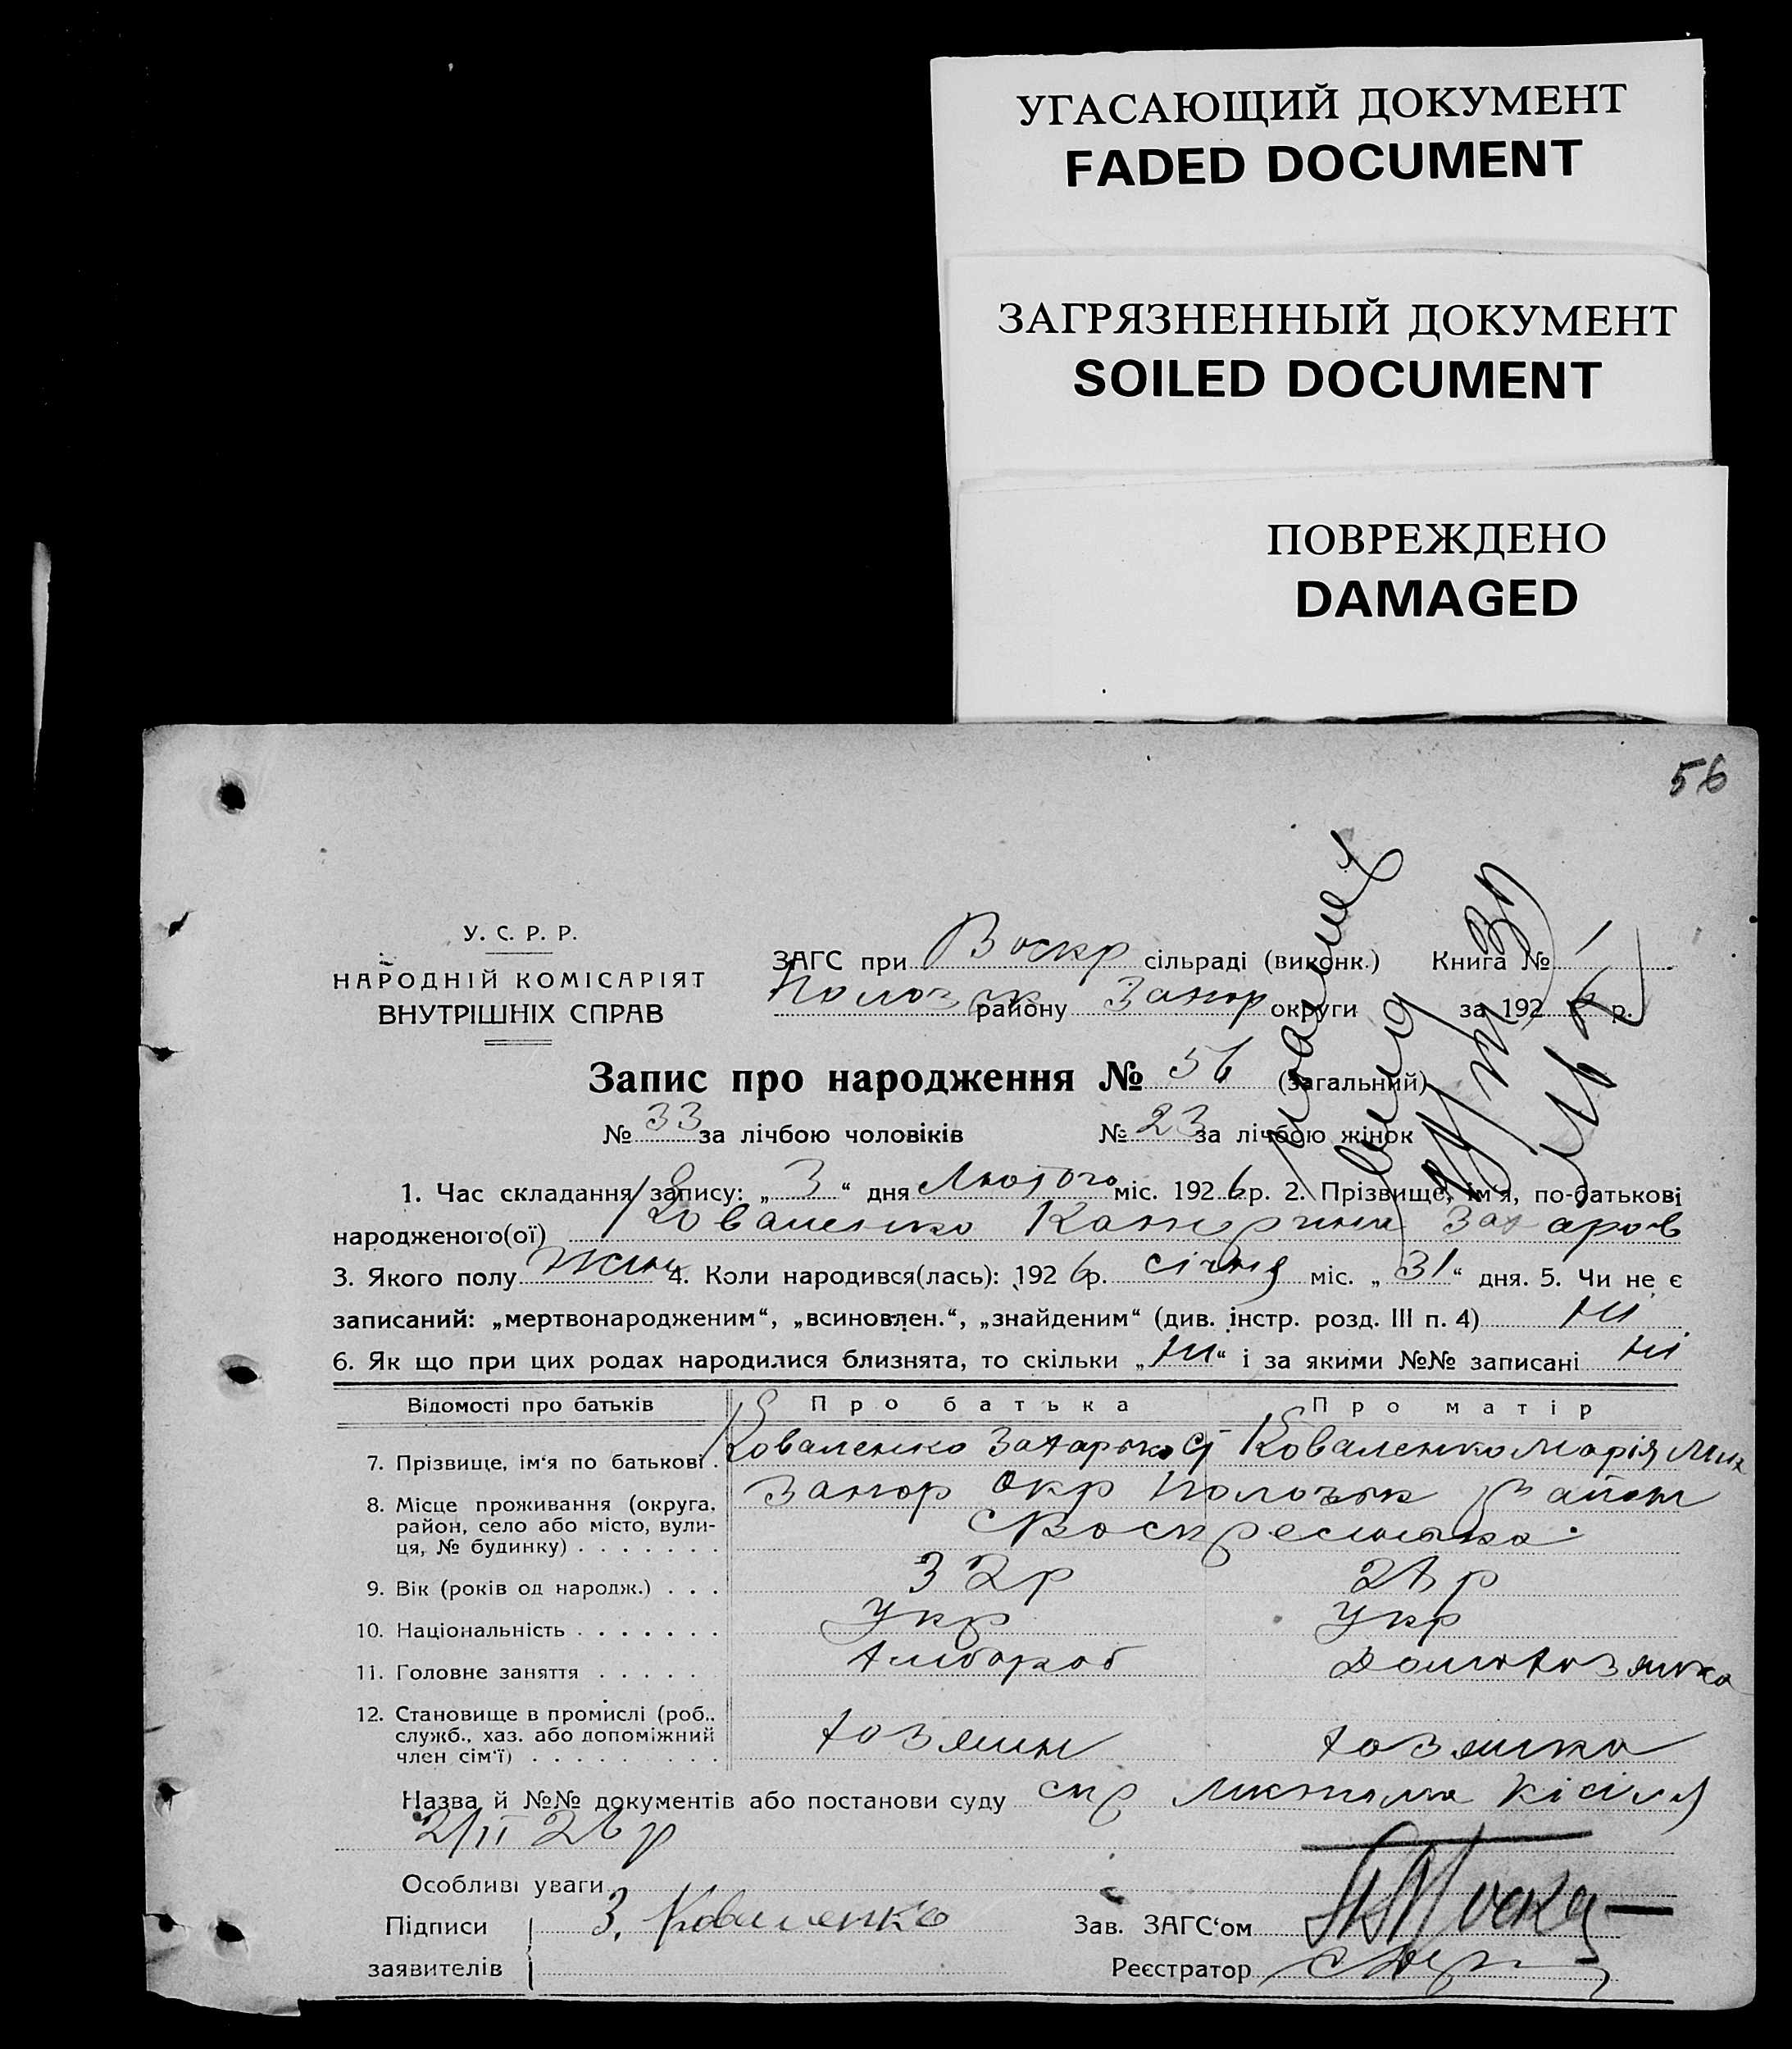 УГАСАЮЩИЙ ДОКУМЕНТ
FADED DOCUMENT
ЗАГРЯЗНЕННЫЙ ДОКУМЕНТ
SOILED DOCUMENT
ПОВРЕЖДЕНО
DAMAGED
56
У. С. Р. Р.
НАРОДНІЙ КОМІСАРІЯТ
ВНУТРІШНІХ СПРАВ
ЗАГС при Воскр сільраді (виконк.) Книга № 1
Полозьк району Запор округи за 1926 р.
Запис про народження № 56 (загальний)
№ 33 за лічбою чоловіків № 23 за лічбою жінок
1. Час складання запису: „ 3 “ дня Лютого міс. 1926 р. 2. Прізвище, ім'я, по-батькові
народженого(ої) Коваленко Катерина Захаров
3. Якого полу Жін 4. Коли народився(лась): 1926 р. січня міс. „ 31 “ дня. 5. Чи не є
записаний: „мертвонародженим“, „всиновлен.“, „знайденим“ (див. інстр. розд. III п. 4) Ні
6. Як що при цих родах народилися близнята, то скільки „ Ні “ і за якими №№ записані Ні
Відомості про батьків Про батька Про матір
7. Прізвище, ім'я по батькові . Коваленко Захарько Коваленко Марія Мих
8. Місце проживання (округа, Запор Окр Полозьк Район
район, село або місто, вули-
ця, № будинку) . . . . . . . с Воскресенька
9. Вік (років од народж.) . . . 32 р 28 р
10. Національність . . . . . . . Укр Укр
11. Головне заняття . . . . . Хлібороб Домохозяйка
12. Становище в промислі (роб.,
служб., хаз. або допоміжний
член сім'ї) . . . . . . . . . Хозяин Хозяйка
Назва й №№ документів або постанови суду
2/II 26 р
Особливі уваги
Підписи З. Коваленко Зав. ЗАГС'ом
заявителів Реєстратор